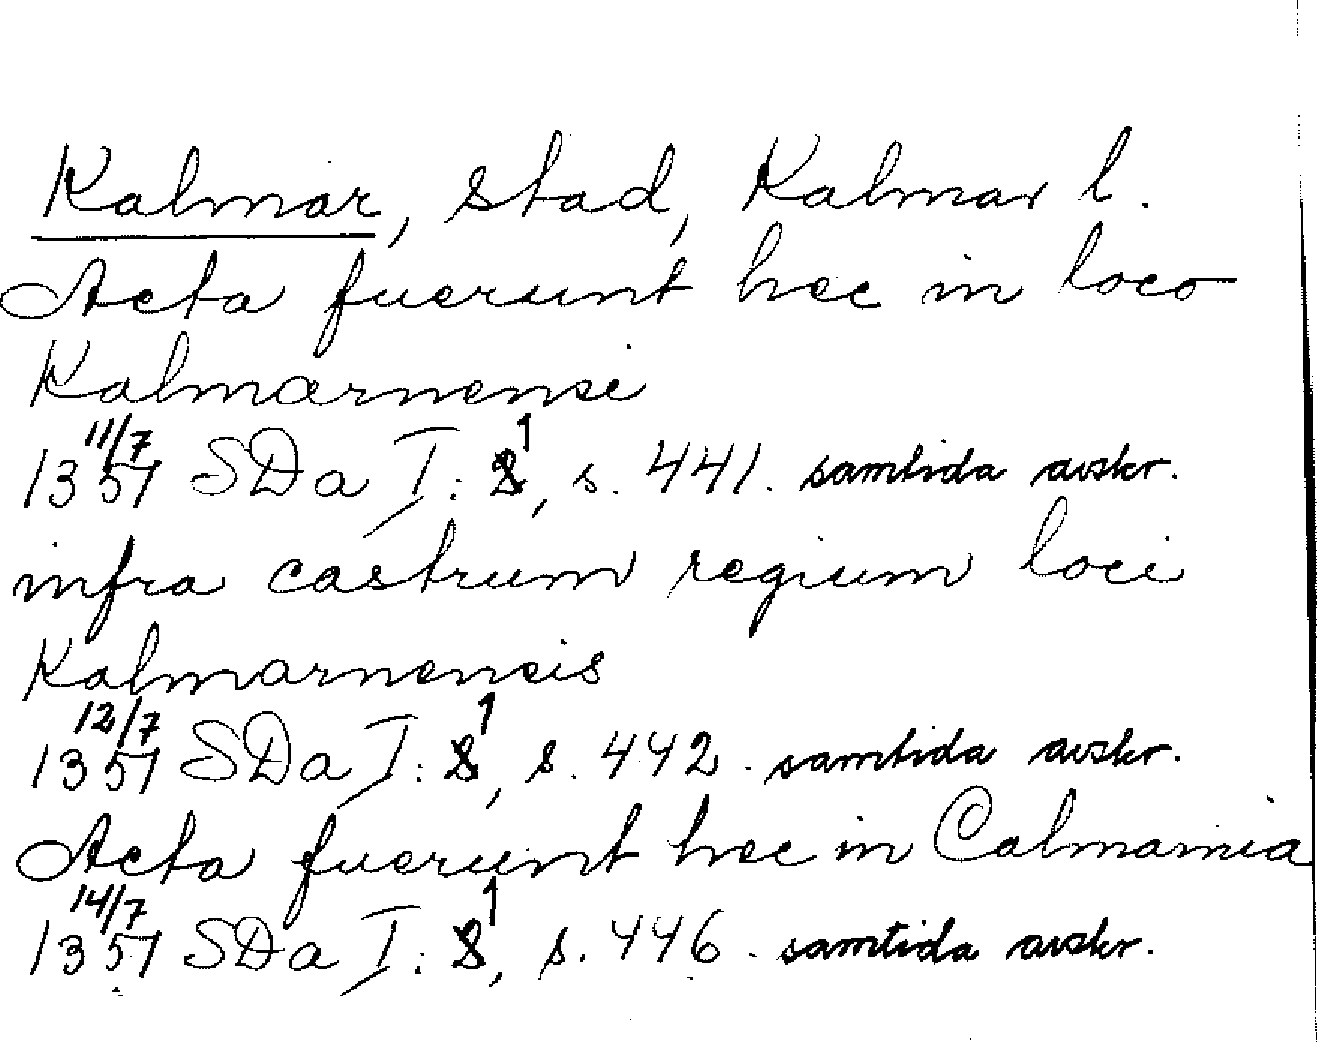 Kalmar, stad, Kalmar l.
Acta fuerunt hec in loco
Kalmarnensi
11/7
1357 SDa I: 1, s. 441. samtida avskr.
infra castrum regium loci
Kalmarnensis
12/7
1357 SDa I: 1, s. 442. samtida avskr.
Acta fuerunt hec in Calmarnia
14/7
1357 SDa I: 1, s. 446. samtida avskr.